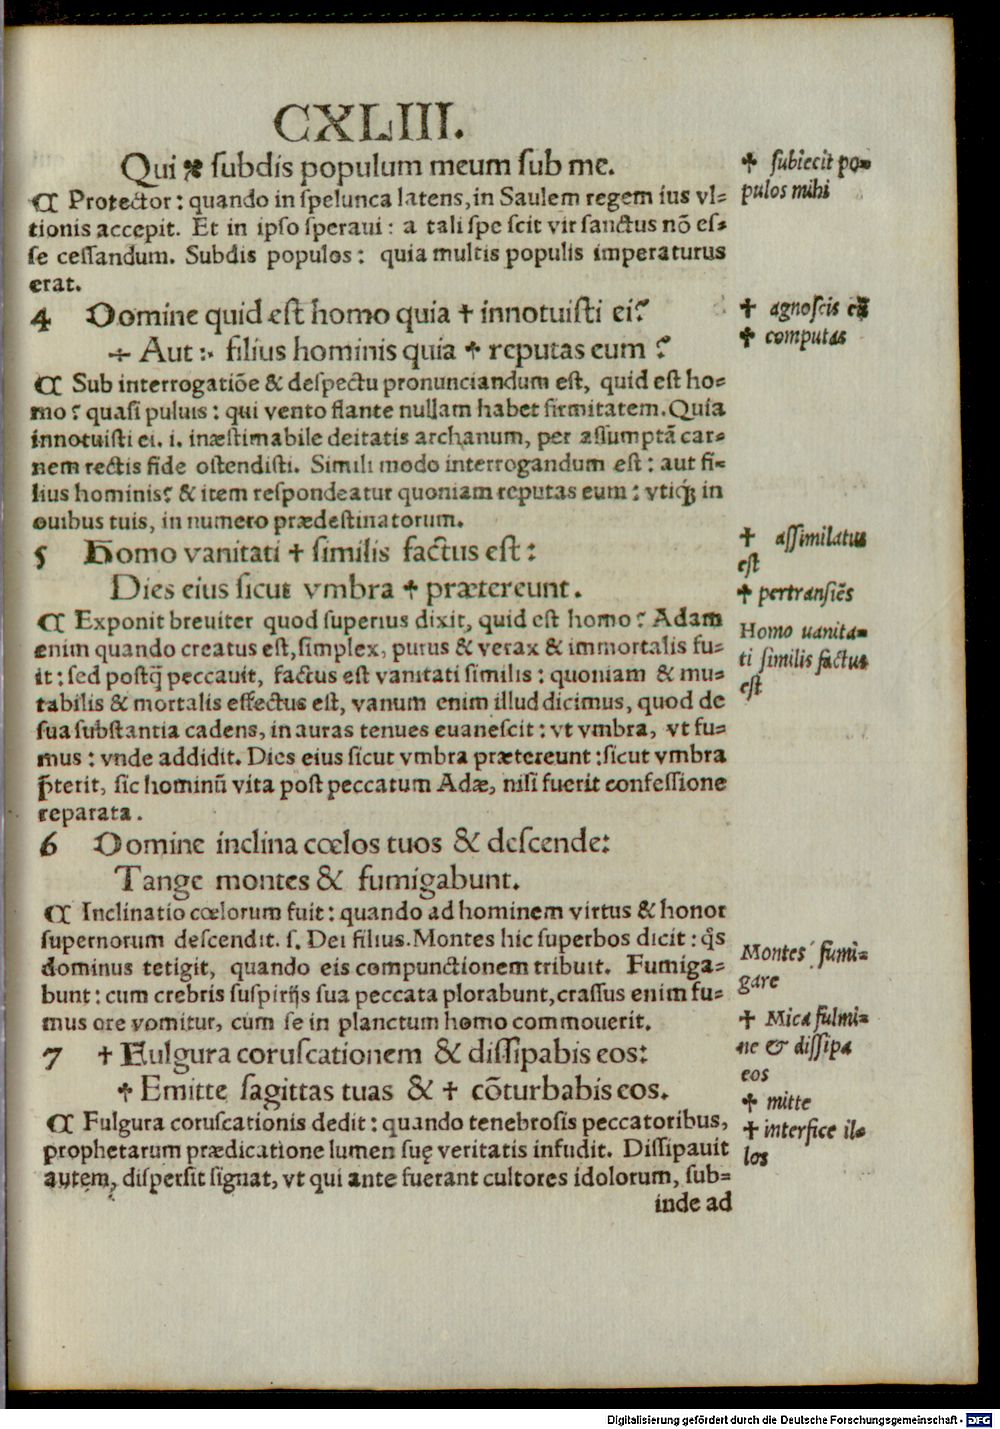 CXLIII.
Qui ✤ ſubdis populum meum ſub me.
✤ ſubiecit po=
pulos mihi
¶ Protector: quando in ſpelunca latens, in Saulem regem ius vl=
tionis accepit. Et in ipſo ſperaui: a tali ſpe ſcit vir ſanctus nõ eſ=
ſe ceſſandum. Subdis populos: quia multis populis imperaturus
erat.
4 Domine quid eſt homo quia ✝ innotuiſti ei?
✝ agnoſcis eũ
÷ Aut :· filius hominis quia ✤ reputas eum ?
✤ computas
¶ Sub interrogatiõe & deſpectu pronunciandum eſt, quid eſt ho=
mo? quaſi puluis: qui vento flante nullam habet firmitatem. Quia
innotuiſti ei. i. inæſtimabile deitatis archanum, per aſſumptã car=
nem rectis fide oſtendiſti. Simili modo interrogandum eſt: aut fi=
lius hominis? & item reſpondeatur quoniam reputas eum: vtiqꝫ in
ouibus tuis, in numero prædeſtinatorum.
5 Homo vanitati ✝ ſimilis factus eſt:
✝ aſſimilatus
eſt
Dies eius ſicut vmbra ✤ prætereunt.
✤ pertranſiẽs
¶ Exponit breuiter quod ſuperius dixit, quid eſt homo? Adam
enim quando creatus eſt, ſimplex, purus & verax & immortalis fu=
it: ſed poſtq̃ peccauit, factus eſt vanitati ſimilis: quoniam & mu=
tabilis & mortalis effectus eſt, vanum enim illud dicimus, quod de
ſua ſubſtantia cadens, in auras tenues euaneſcit: vt vmbra, vt fu=
mus: vnde addidit. Dies eius ſicut vmbra prætereunt: ſicut vmbra
p̃terit, ſic hominũ vita poſt peccatum Adæ, niſi fuerit confeſſione
reparata.
Homo uanita=
ti ſimilis factus
eſt
6 Domine inclina cœlos tuos & deſcende:
Tange montes & fumigabunt.
¶ Inclinatio cœlorum fuit: quando ad hominem virtus & honor
ſupernorum deſcendit. ſ. Dei filius. Montes hic ſuperbos dicit: q̃s
dominus tetigit, quando eis compunctionem tribuit. Fumiga=
bunt: cum crebris ſuſpirijs ſua peccata plorabunt, craſſus enim fu=
mus ore vomitur, cum ſe in planctum homo commouerit.
Montes fumi=
gare
7 ✝ Fulgura coruſcationem & diſſipabis eos:
✝ Mica fulmi=
ne & diſſipa
eos
✤ Emitte ſagittas tuas & ✝ cõturbabis eos.
✤ mitte
✝ interfice il=
los
¶ Fulgura coruſcationis dedit: quando tenebroſis peccatoribus,
prophetarum prædicatione lumen ſuę veritatis infudit. Diſſipauit
autem, diſperſit ſignat, vt qui ante fuerant cultores idolorum, ſub=
inde ad
Digitalisierung gefördert durch die Deutsche Forschungsgemeinschaft - DFG